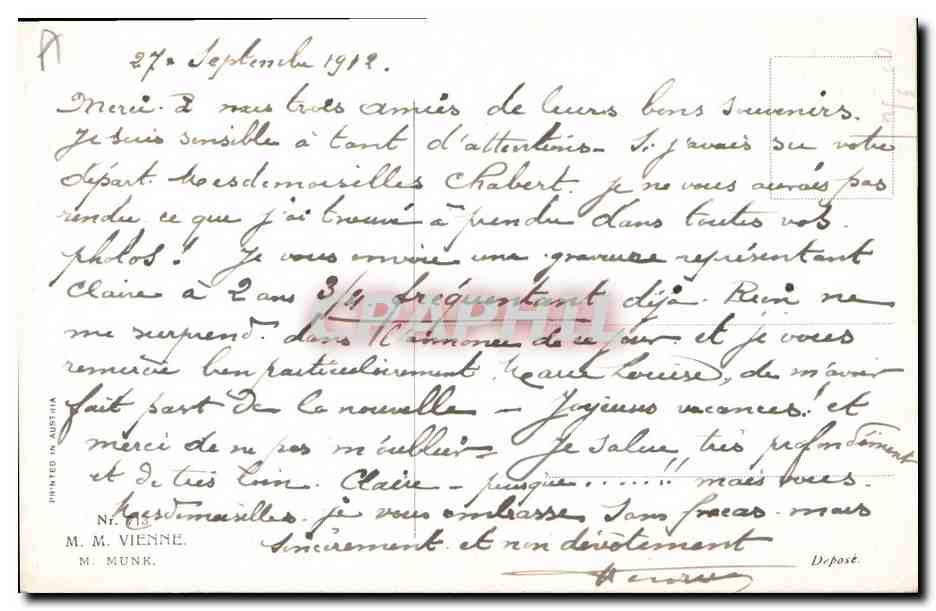 27 Septembre 1912.
Merci à mes trois amies de leurs bons souvenirs.
Je suis sensible à tant d'attentions - Si j'avais su votre
départ. Mesdemoiselles Chabert. je ne vous aurais pas
rendu ce que j'ai trouvé à prendre dans toutes vos
photos! Je vous envoie une gravure représentant
Claire à 2 ans 3/4 fréquentant déjà. Rien ne
me surprend. dans l'annonce de ce jour et je vous
remercie bien particulièrement. Marie Louise, de m'avoir
fait part de la nouvelle - Joyeuses vacances! et
merci de ne pas m'oublier - Je salue très profondément
et de très loin. Claire - puisque ......!! mais vous.
Mesdemoiselles. je vous embrasse sans fracas. mais
sincèrement et non dévotement
CPAPHIL
PRINTED IN AUSTRIA
Nr.
M. M. VIENNE.
M. MUNK.
Deposé.